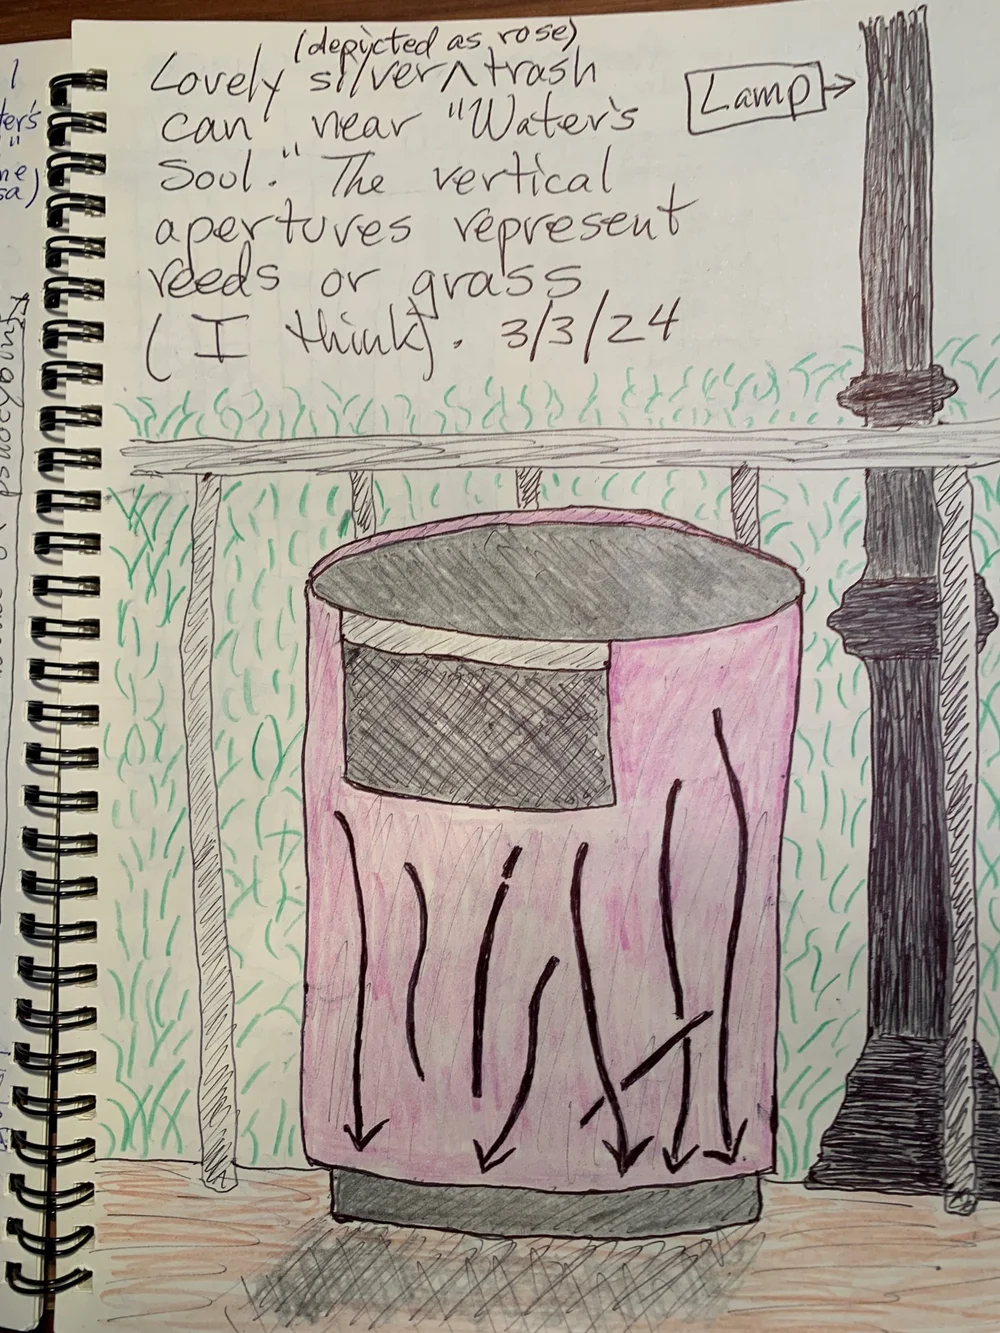 (depicted as rose)
Lovely silver ^ trash
can near "Water's
Soul." The vertical
apertures represent
reeds or grass
(I think). 3/3/24
Lamp